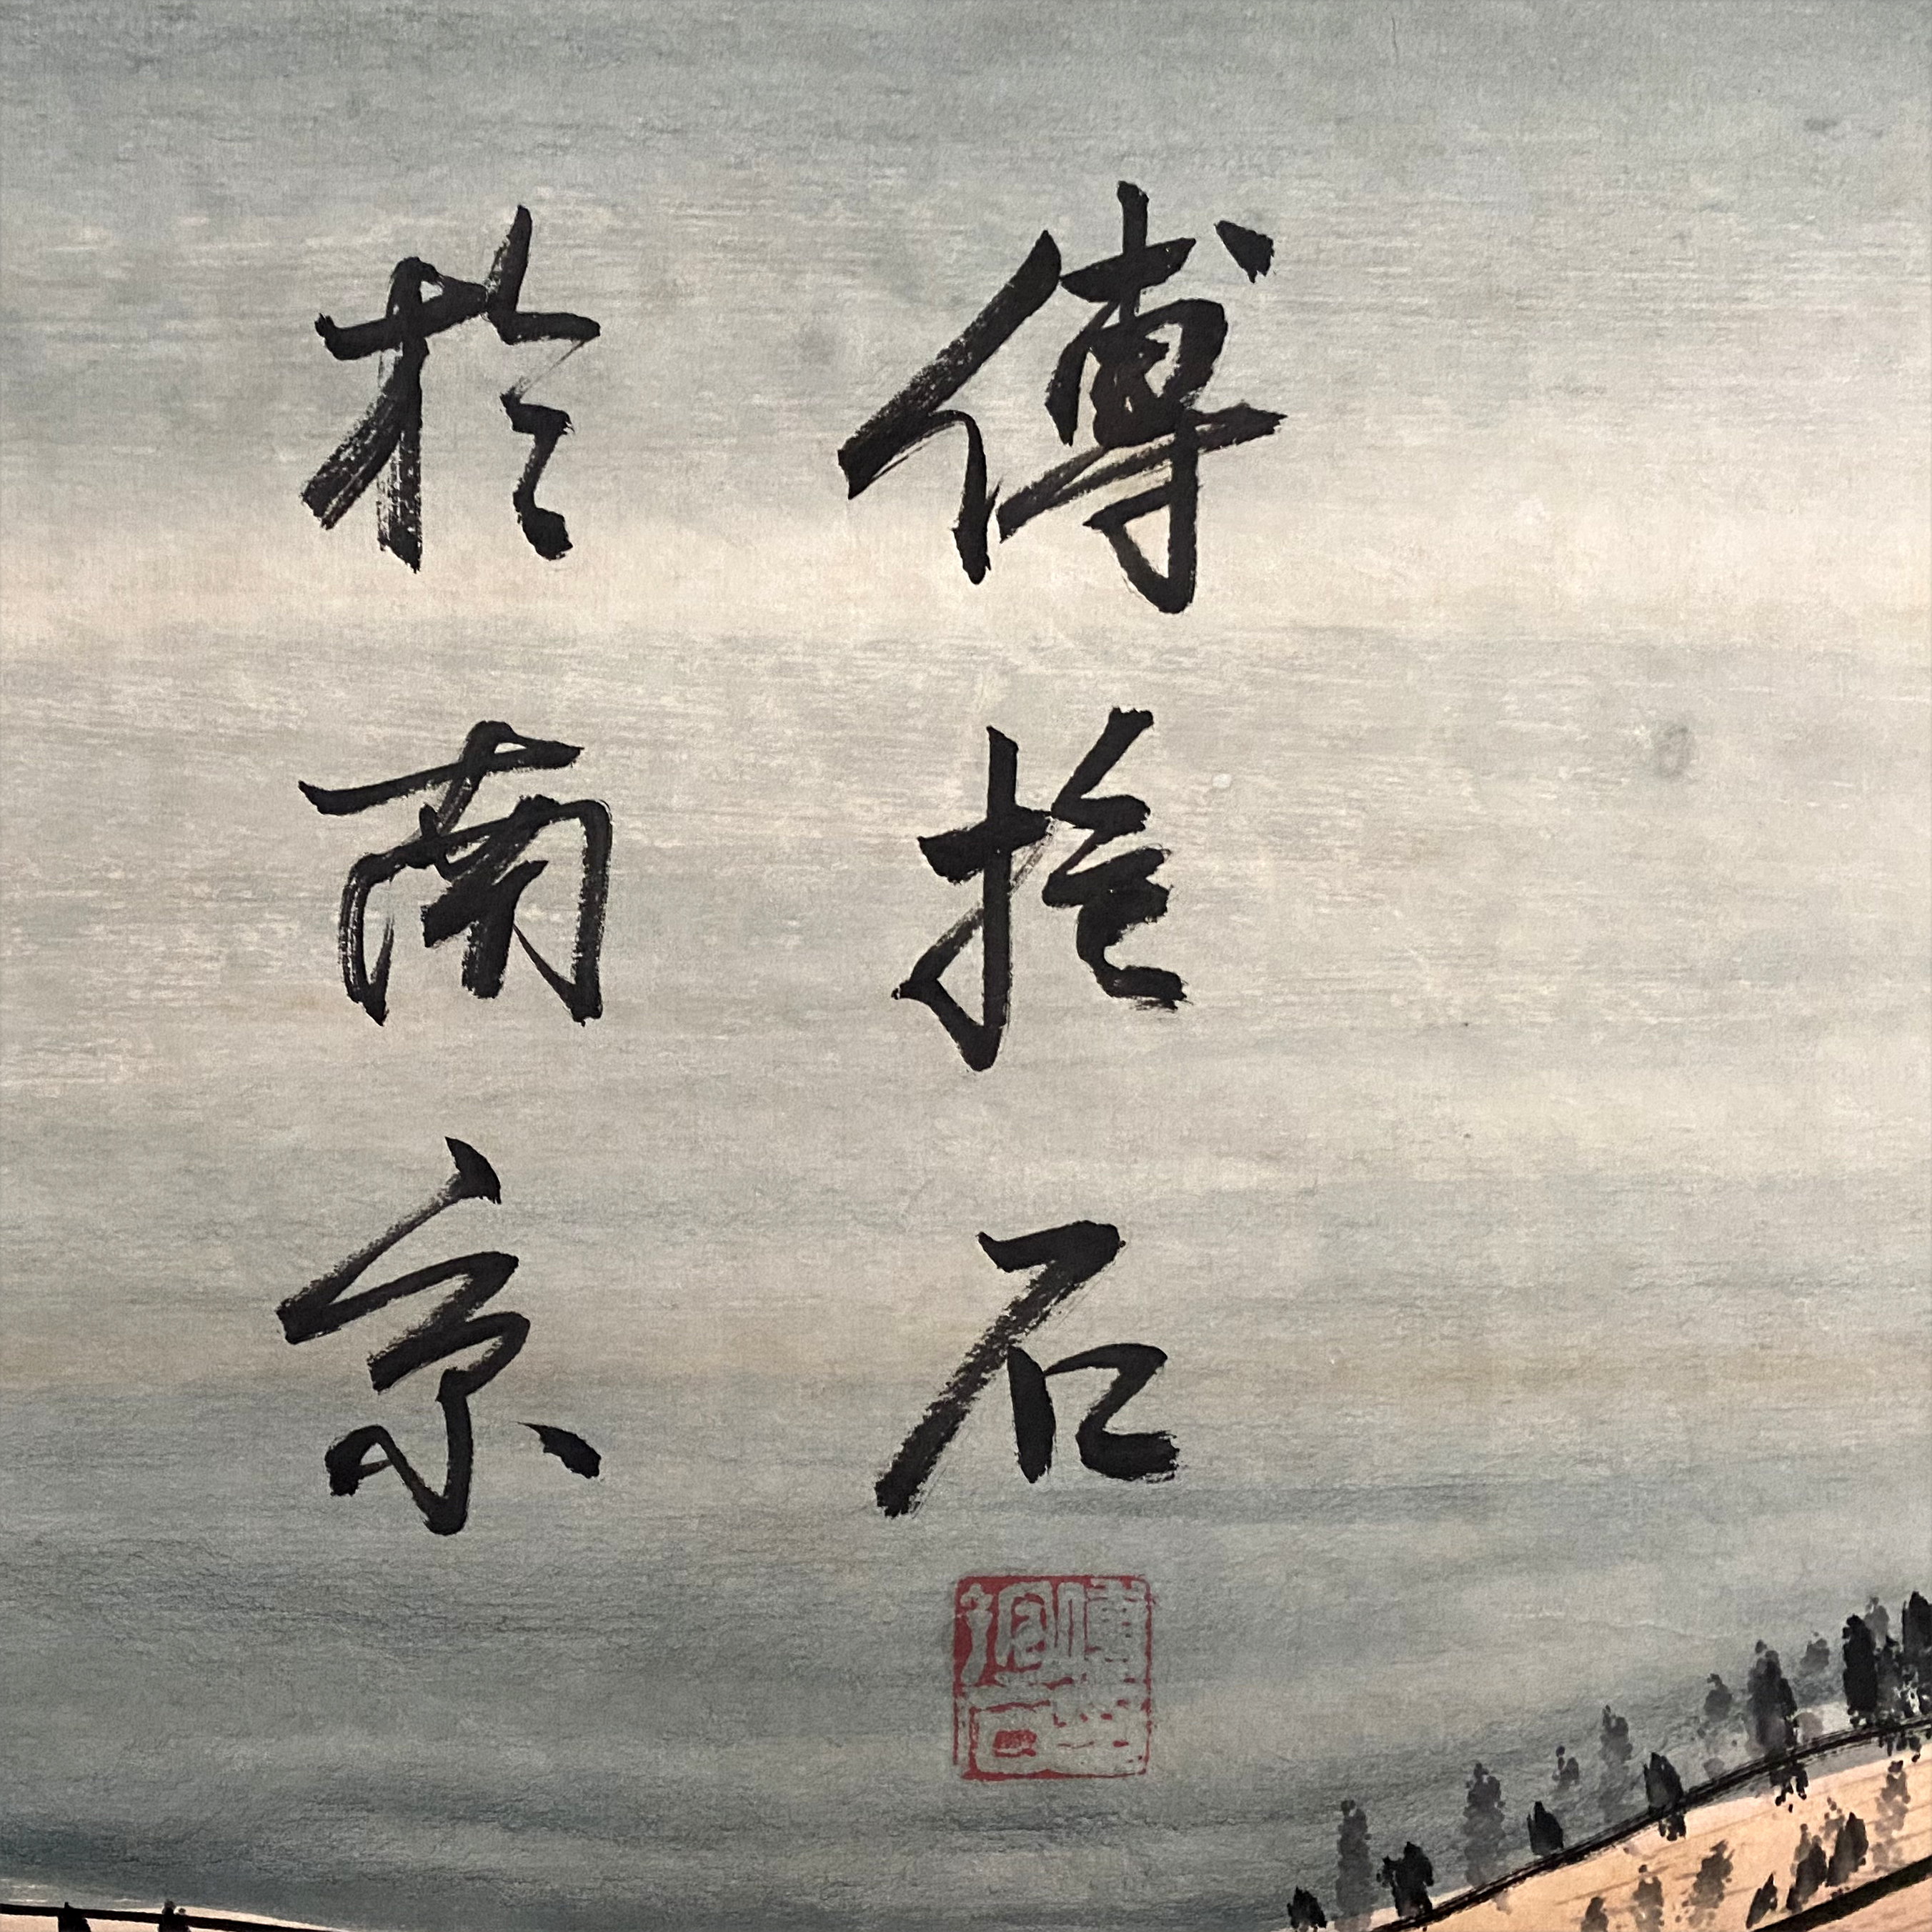 傅抱石
於南京
傅抱石印